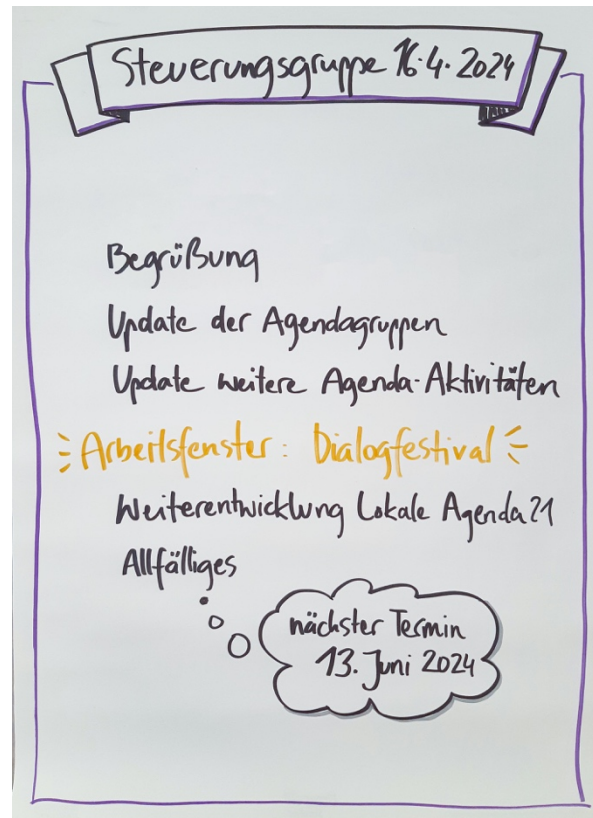 Steuerungsgruppe 16.4.2024
Begrüßung
Update der Agendagruppen
Update weitere Agenda-Aktivitäten
Arbeitsfenster: Dialogfestival
Weiterentwicklung Lokale Agenda 21
Allfälliges
nächster Termin
13. Juni 2024